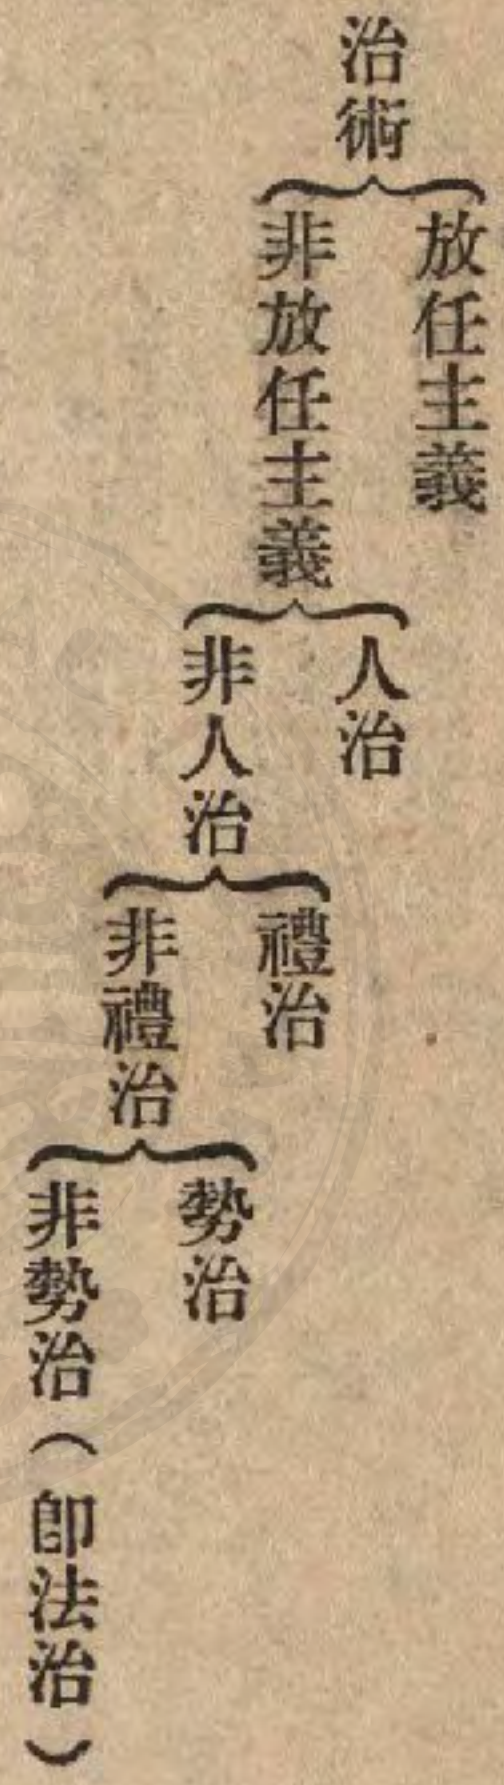 治術
放任主義
非放任主義
人治
非人治
禮治
非禮治
勢治
非勢治（卽法治）